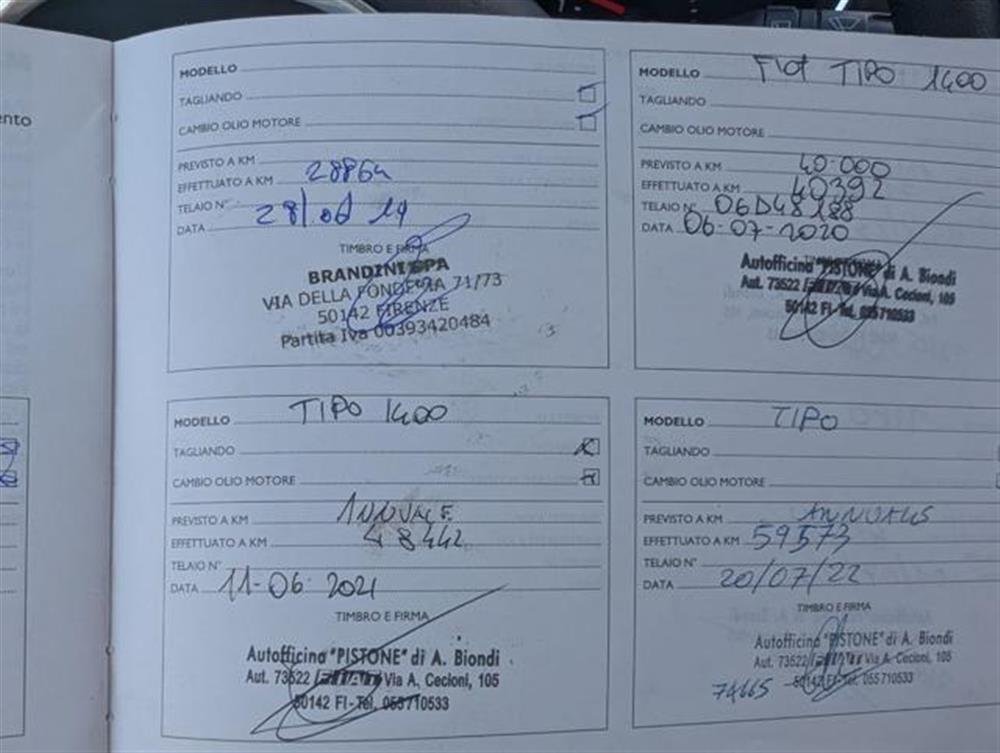 ento
MODELLO
TAGLIANDO
CAMBIO OLIO MOTORE
PREVISTO A KM
EFFETTUATO A KM 28864
TELAIO N°
DATA 28/06 19
TIMBRO E FIRMA
BRANDINI SPA
VIA DELLA FONDERIA 71/73
50142 FIRENZE
Partita Iva 00393420484
MODELLO Fiat TIPO 1400
TAGLIANDO
CAMBIO OLIO MOTORE
PREVISTO A KM 40.000
EFFETTUATO A KM 40392
TELAIO N° 06D48188
DATA 06-07-2020
Autofficina "PISTONE" di A. Biondi
Aut. 73522 Via A. Cecioni, 105
50142 FI-Tel. 055710533
MODELLO TIPO 1400
TAGLIANDO
CAMBIO OLIO MOTORE
PREVISTO A KM ANNUALE
EFFETTUATO A KM 48442
TELAIO N°
DATA 11-06-2021
TIMBRO E FIRMA
Autofficina "PISTONE" di A. Biondi
Aut. 73522 Via A. Cecioni, 105
50142 FI-Tel. 055710533
MODELLO TIPO
TAGLIANDO
CAMBIO OLIO MOTORE
PREVISTO A KM
EFFETTUATO A KM 59573
TELAIO N°
DATA 20/07/22
TIMBRO E FIRMA
Autofficina "PISTONE" di A. Biondi
Aut. 73522 Via A. Cecioni, 105
50142 FI-Tel. 055710533